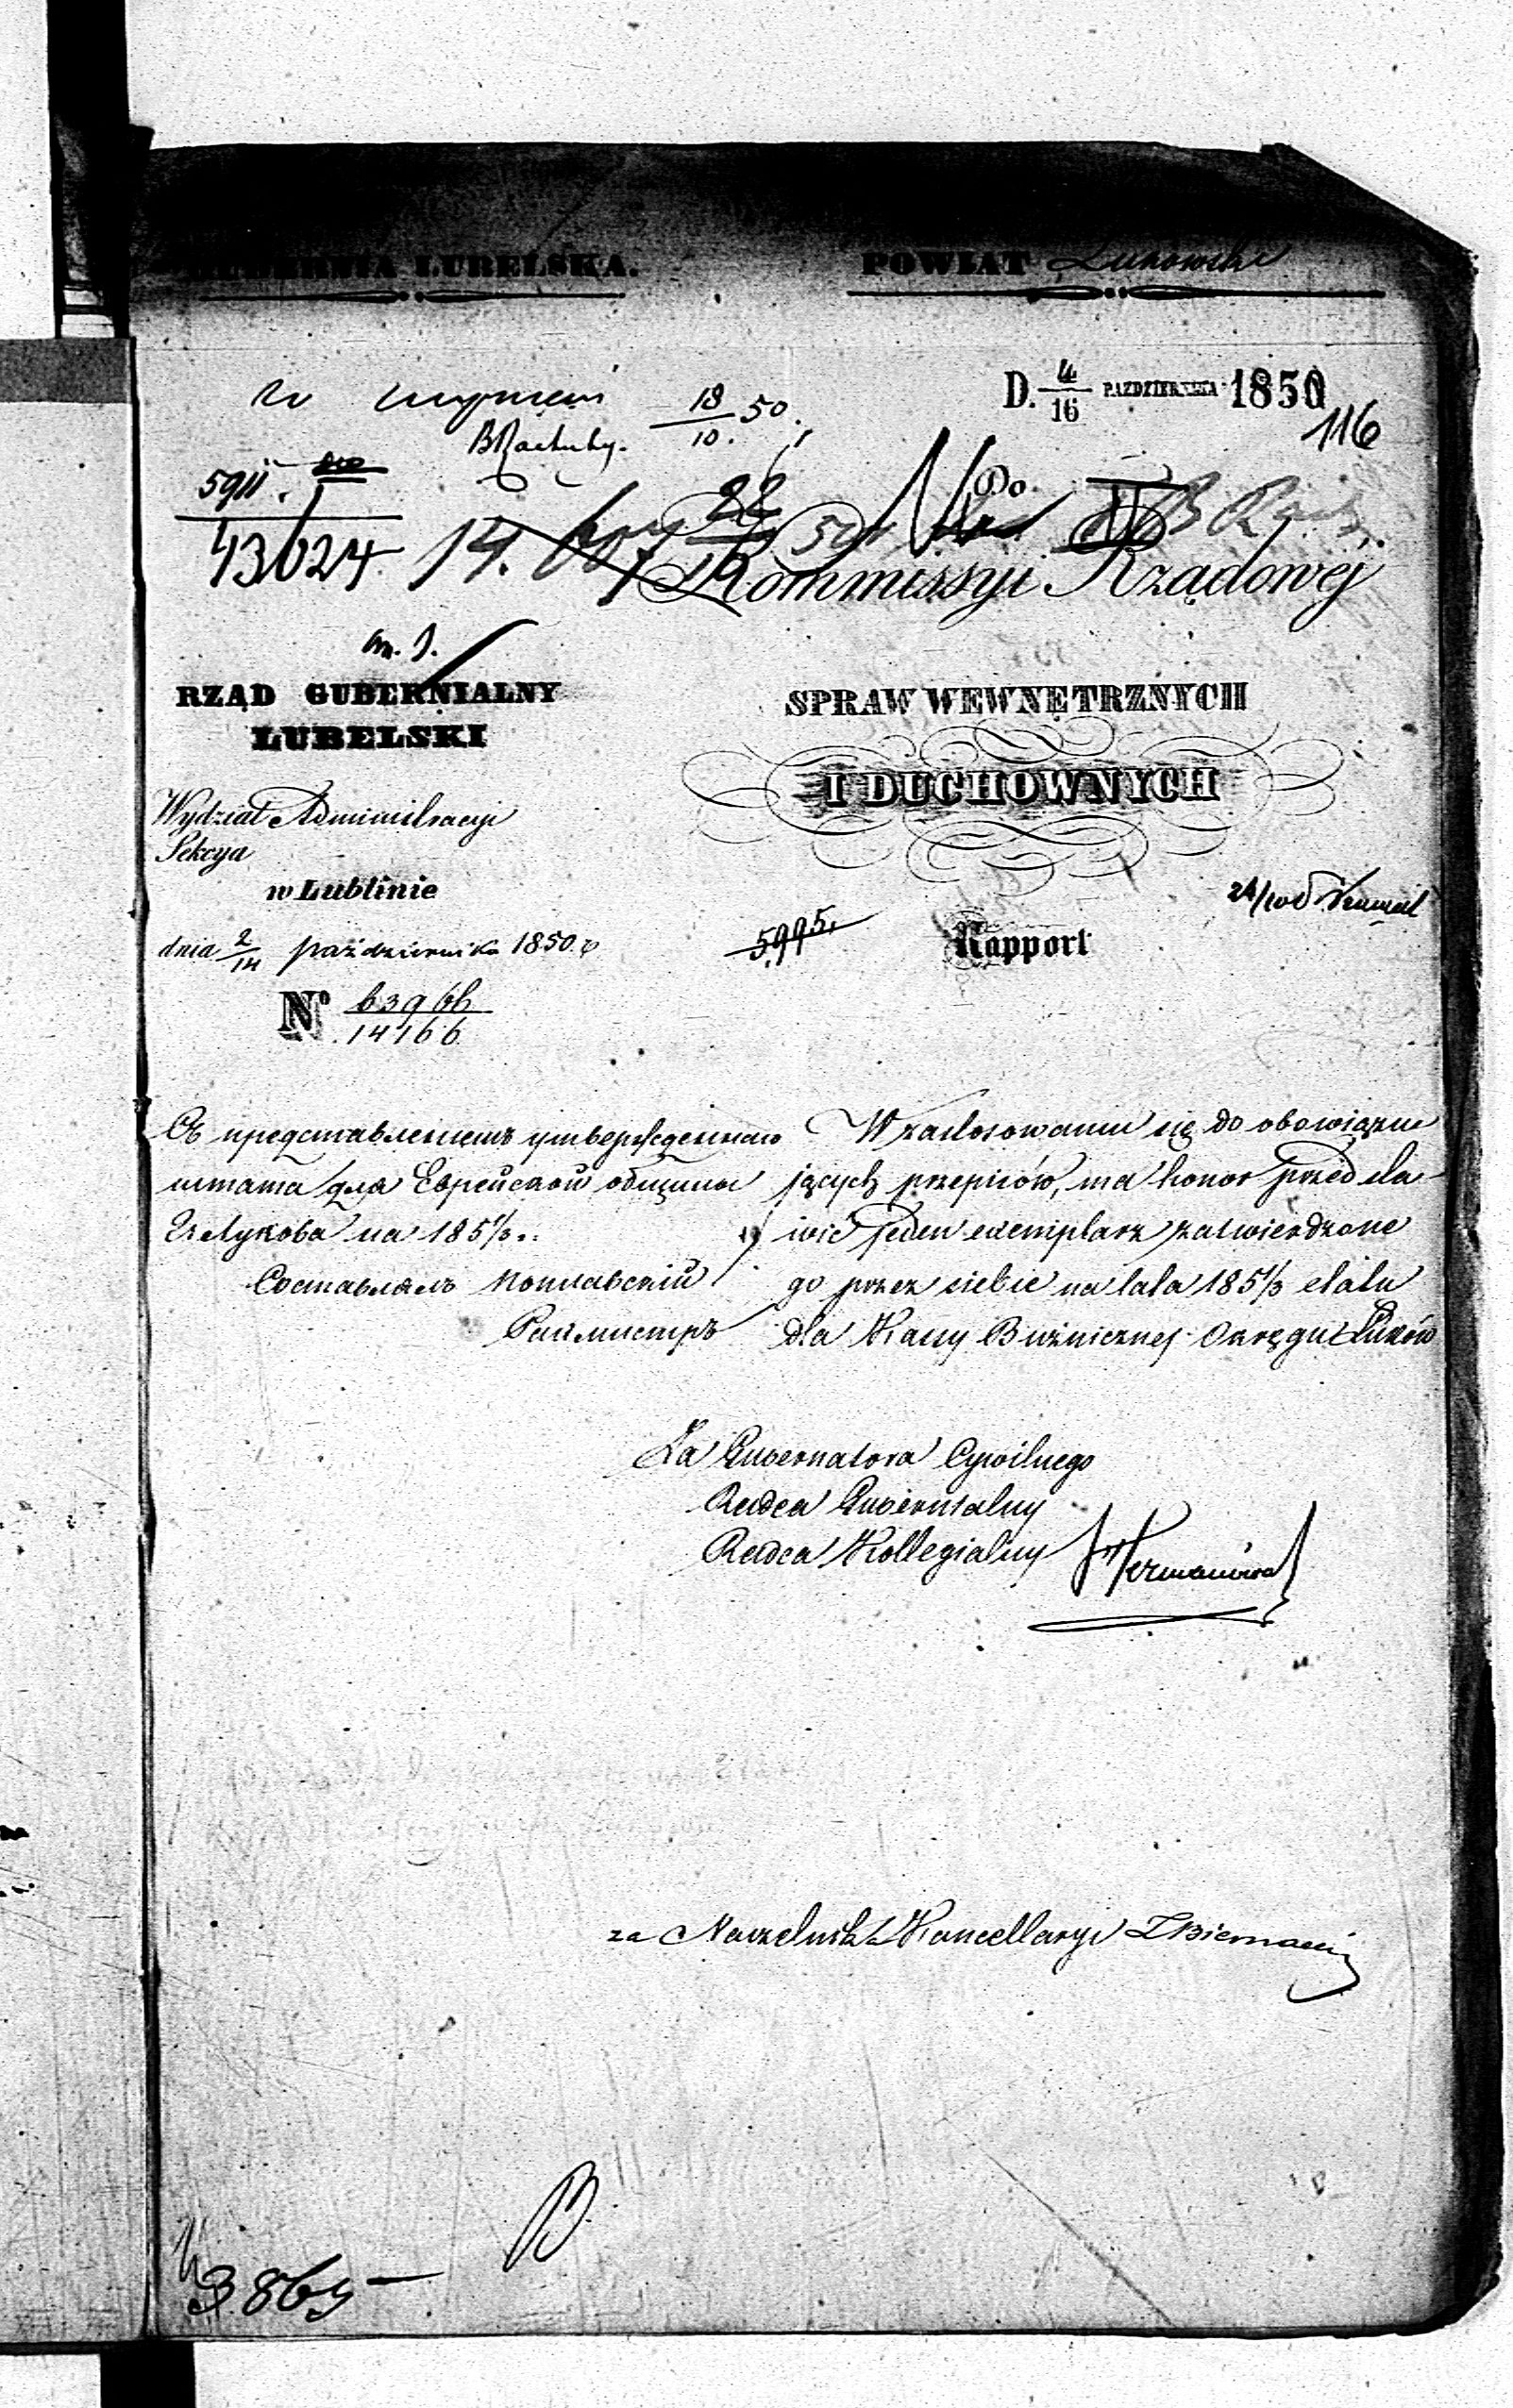 GUBERNIA LUBELSKA. POWIAT Łukowski
D. 4/16 PAŹDZIERNIKA 1850
18/10. 50.
116
5911.
43624
Do
Kommissyi Rządowéj
RZĄD GUBERNIALNY
LUBELSKI
SPRAW WEWNĘTRZNYCH
I DUCHOWNYCH
Wydział Administracyi
Sekcya
w Lublinie
dnia 2/14 października 1850. r
5995.
Rapport
No 63966/14166
Съ представленіемъ утвержденнаго
штата для Еврейской общины
г. Лукова на 185 1/3..
Составлялъ Поплавскій
W zastosowaniu się do obowiązu
jących przepisów, ma honor przed sta
wić jeden exemplarz zatwierdzone
go przez siebie na lata 185 1/3 etatu
dla Kassy Bużnicznej Okręgu Łuków
Za Gubernatora Cywilnego
Radca Gubernialny
Radca Kollegialny
za Naczelnika Kancellaryi
B.
3865